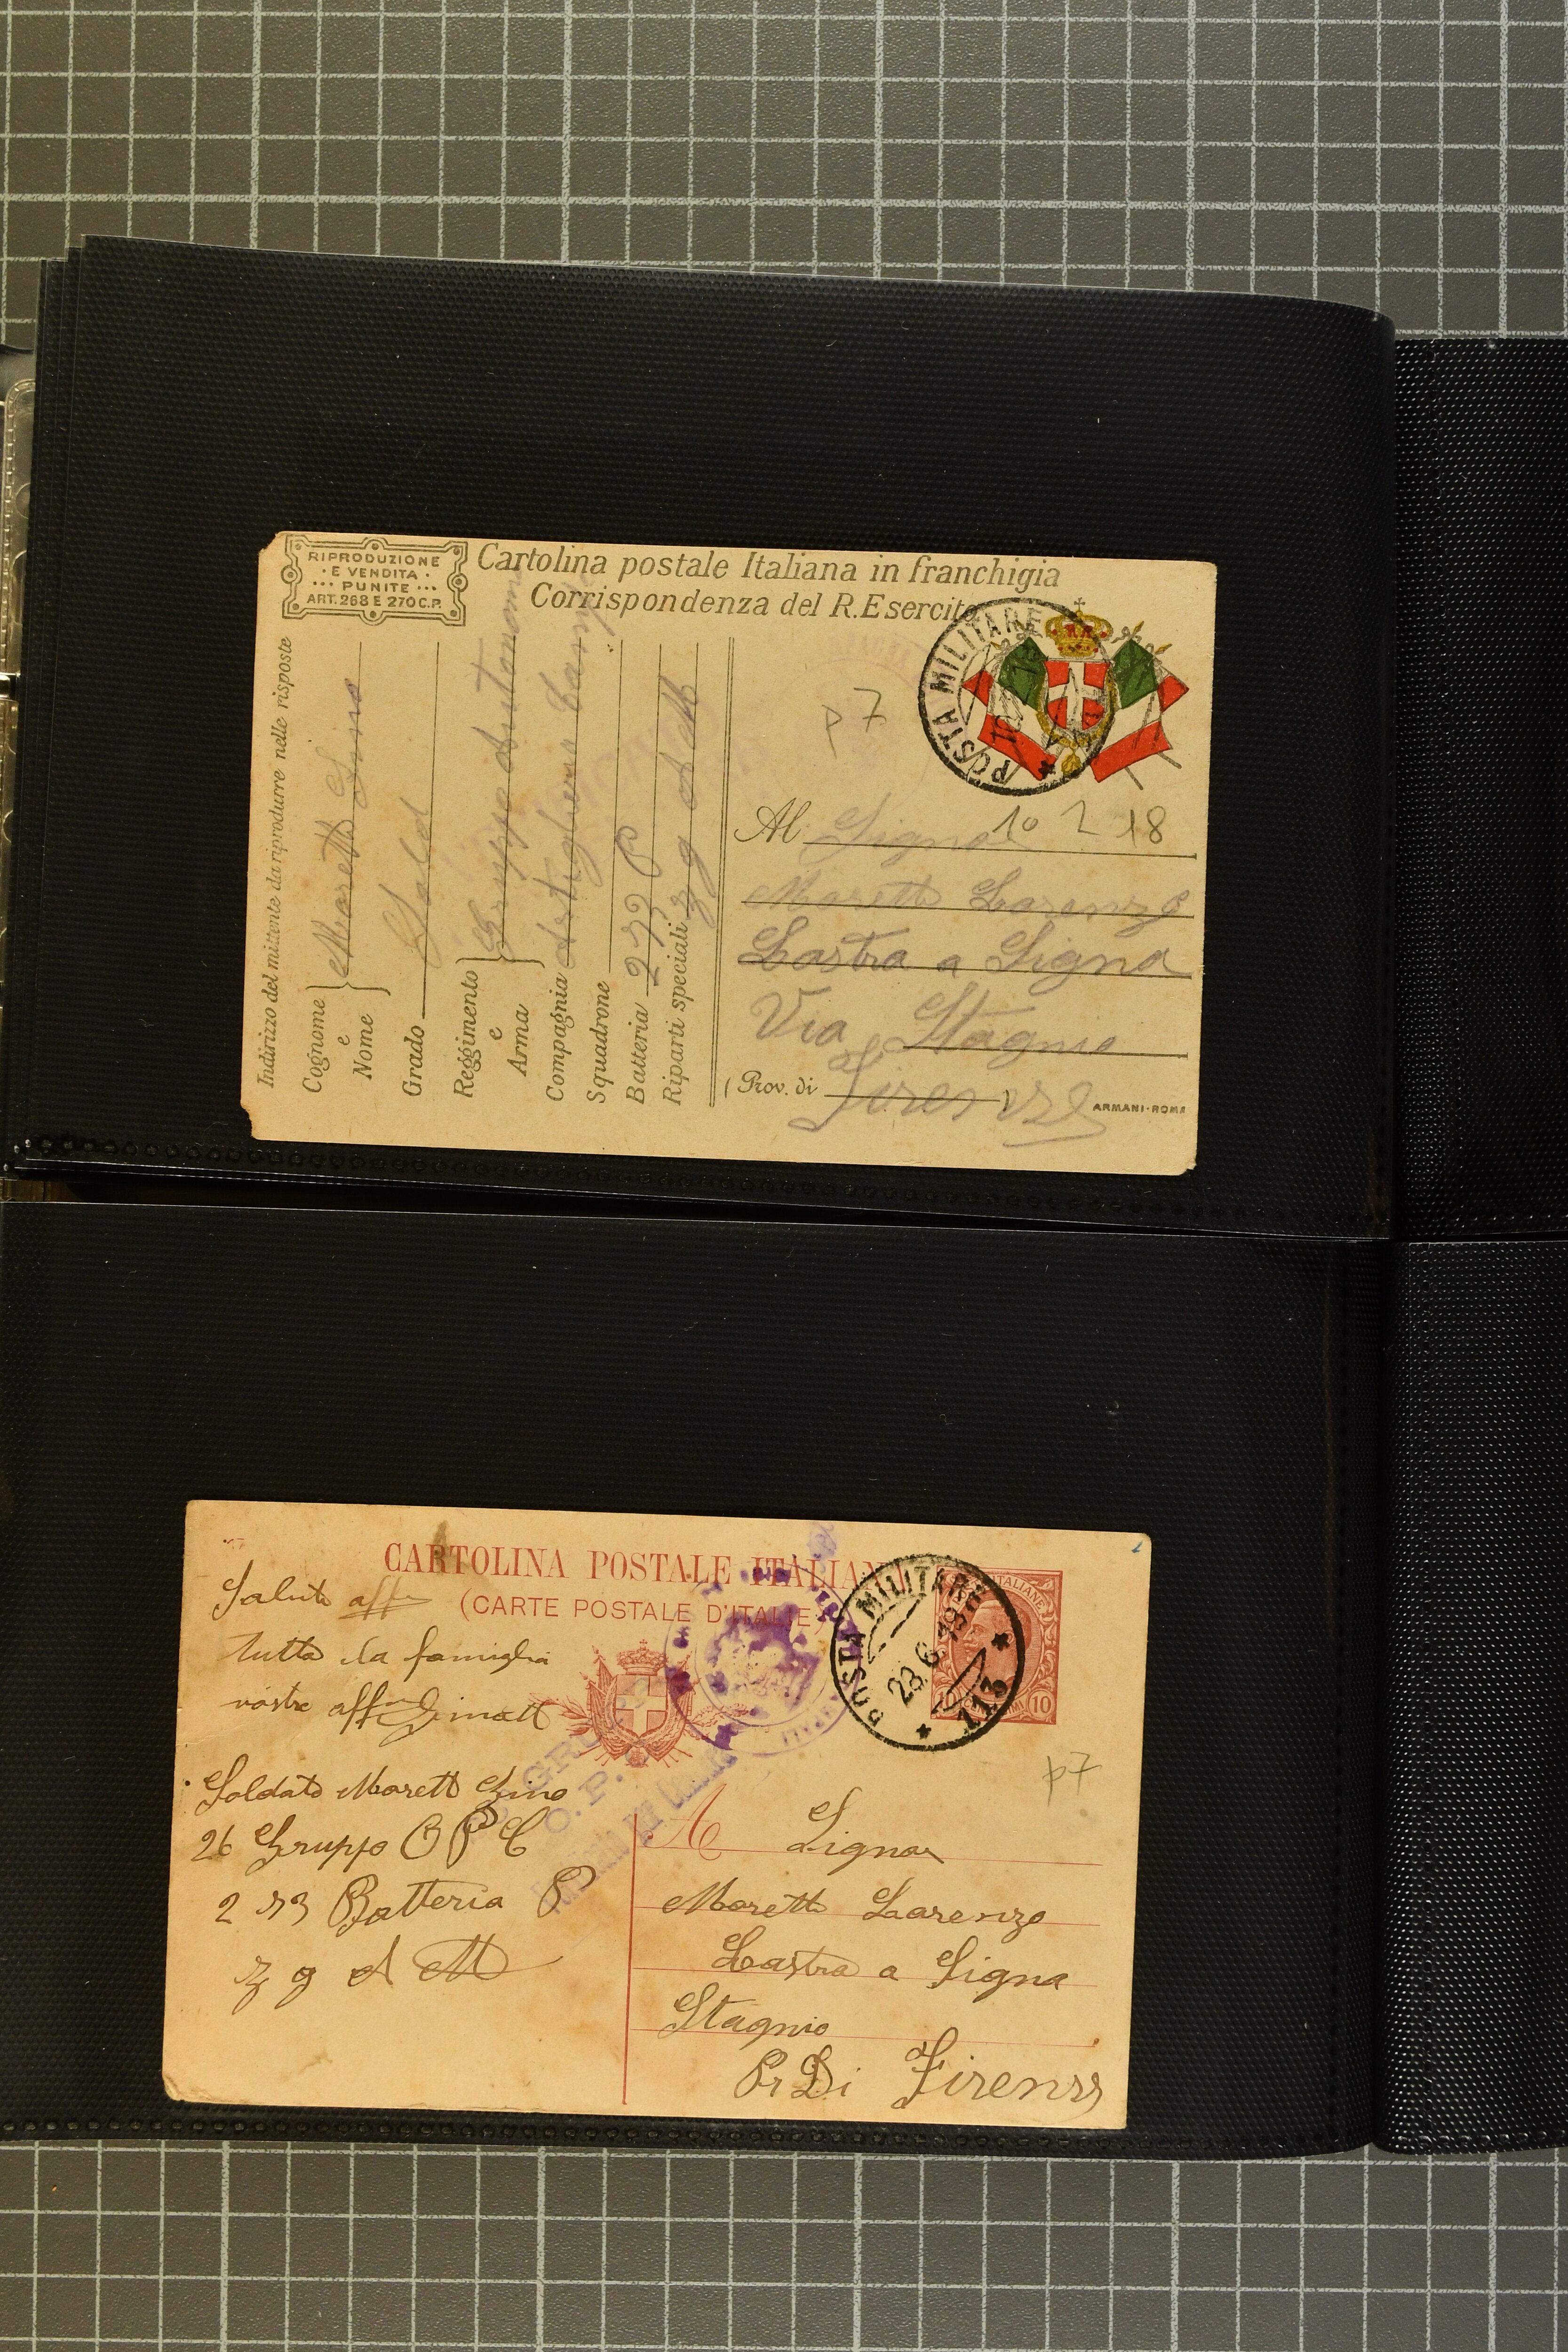 RIPRODUZIONE
E VENDITA
PUNITE
ART. 268 E 270 C.P.
Cartolina postale Italiana in franchigia
Corrispondenza del R. Esercito
POSTA MILITARE
Indirizzo del mittente da riprodurre nelle risposte
Cognome e Nome Moretti Gino
Grado Sold
Reggimento e Arma Gruppo Autonomo
Compagnia Artiglieria Camp
Squadrone
Batteria 273 P
Riparti speciali Z g
p7
Al Signor
10 2 18
Moretti Lorenzo
Lastra a Signa
Via Stagnio
(Prov. di Firenze)
ARMANI-ROMA
CARTOLINA POSTALE ITALIANA
(CARTE POSTALE D'ITALIE)
POSTA MILITARE
23 6
113
10
Saluti aff
tutta la famiglia
vostro aff Gino
Soldato Moretti Gino
26 Gruppo O P C
273 Batteria P
Z g
p7
A Signor
Moretti Lorenzo
Lastra a Signa
Stagnio
Pr Di Firenze